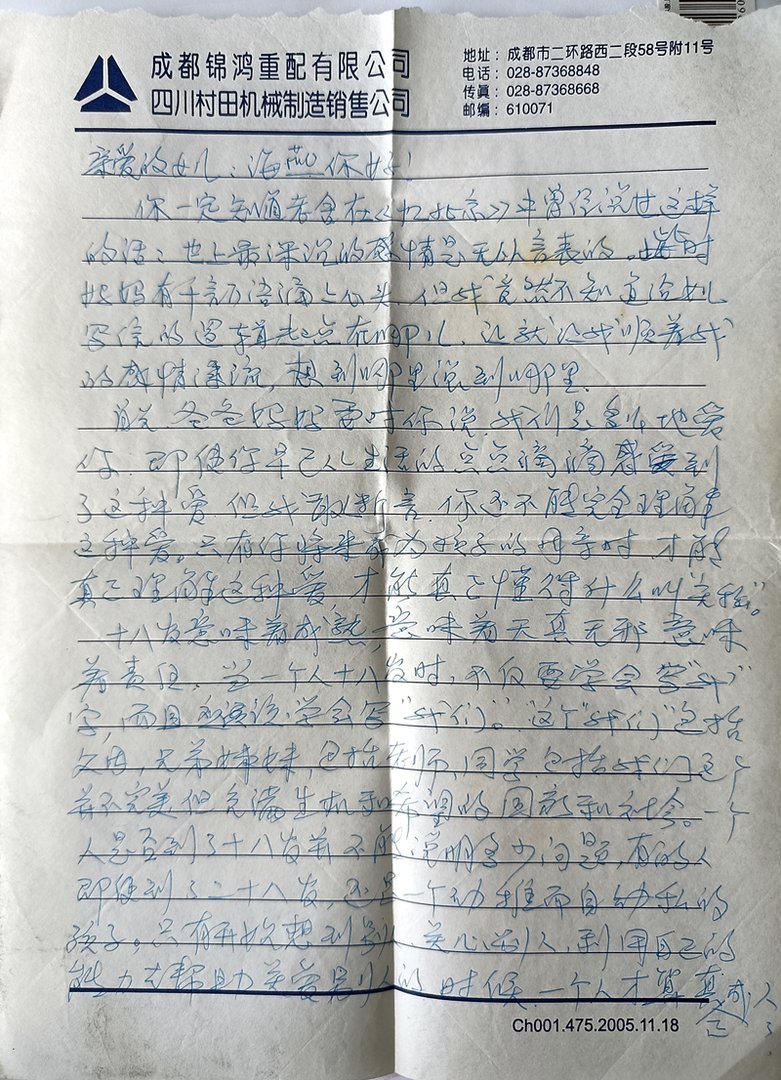 成都锦鸿重配有限公司
四川村田机械制造销售公司
地址：成都市二环路西二段58号附11号
电话：028-87368848
传真：028-87368668
邮编：610071
亲爱的女儿：海燕，你好！
你一定知道老舍在《想北京》中曾经说过这样
的话：世上最深沉的感情是无从言表的。此时
妈妈有千言万语涌上心头，但我竟然不知道给女儿
写信的逻辑起点在哪儿，让就让我顺着我
的感情漂流，想到哪里说到哪里。
首先，爸爸妈妈要对你说，我们是多么地爱
你，即使你早已从生活的点点滴滴感受到
了这种爱，但我敢断言，你还不能完全理解
这种爱。只有你将来成为孩子的母亲时，才能
真正理解这种爱，才能真正懂得什么叫关怀。
十八岁意味着成熟，意味着天真无邪，意味
着责任。当一个人十八岁时，不仅要学会写“我”
字，而且应该说学会写“我们”。这个“我们”包括
父母，兄弟姊妹，包括老师、同学，包括我们这个
并不完美但充满生机和希望的国家和社会。一个
人是否到了十八岁并不能说明多少问题，有的人
即使到了二十八岁，还是一个幼稚而自幼私的
孩子。只有开始想到别人、关心别人，利用自己的
能力去帮助关爱别人的时候，一个人才算真正
成人了。
Ch001.475.2005.11.18